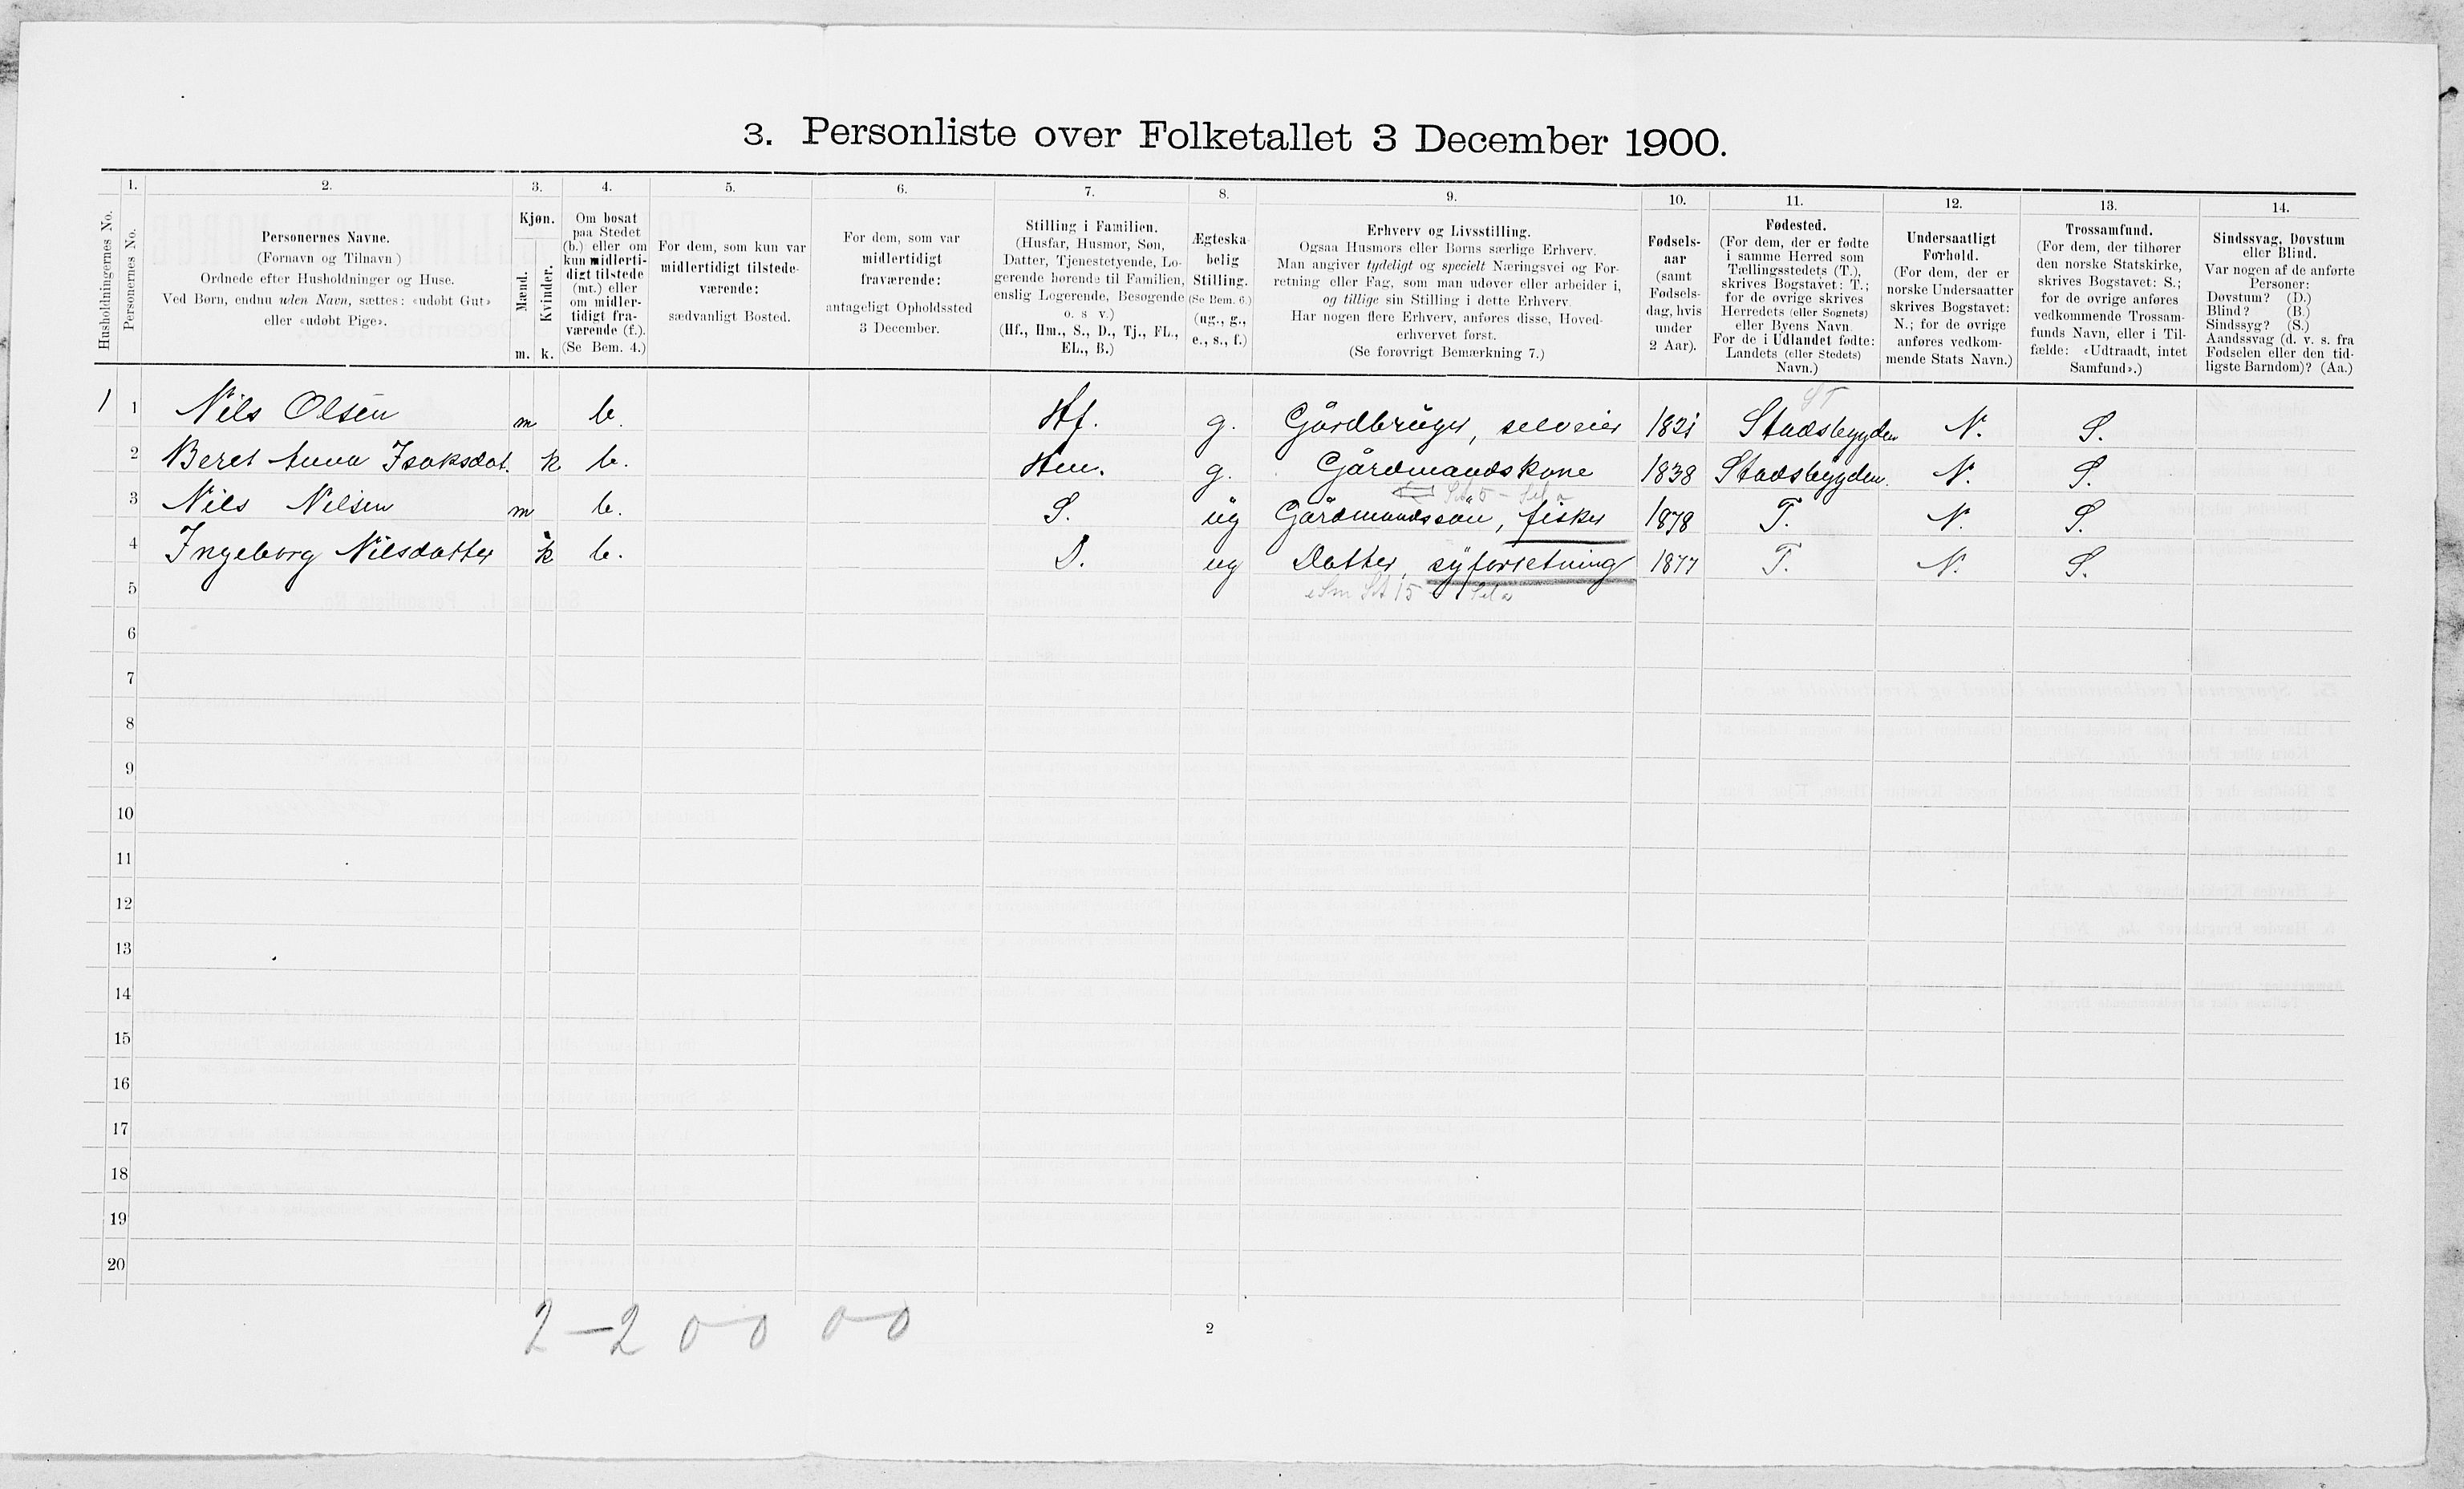 3. Personliste over Folketallet 3 December 1900.
Husholdningernes No.
1.
Personernes No.
2.
Personernes Navne.
(Fornavn og Tilnavn.)
Ordnede efter Husholdninger og Huse.
Ved Børn, endnu uden Navn, sættes: «udøbt Gut»
eller «udøbt Pige».
3.
Kjøn.
Mænd.
Kvinder.
m. k.
4.
Om bosat
paa Stedet
(b.) eller om
kun midlerti-
digt tilstede
(mt.) eller
om midler-
tidigt fra-
værende (f.).
(Se Bem. 4.)
5.
For dem, som kun var
midlertidigt tilstede-
værende:
sædvanligt Bosted.
6.
For dem, som var
midlertidigt
fraværende:
antageligt Opholdssted
3 December.
7.
Stilling i Familien.
(Husfar, Husmor, Søn,
Datter, Tjenestetyende, Lo-
gerende hørende til Familien,
enslig Logerende, Besøgende
o. s. v.)
(Hf., Hm., S., D., Tj., FL.,
EL., B.)
8.
Ægteska-
belig
Stilling.
(Se Bem. 6.)
(ug., g.,
e., s., f.)
9.
Erhverv og Livsstilling.
Ogsaa Husmors eller Børns særlige Erhverv.
Man angiver tydeligt og specielt Næringsvei og For-
retning eller Fag, som man udøver eller arbeider i,
og tillige sin Stilling i dette Erhverv.
Har nogen flere Erhverv, anføres disse, Hoved-
erhvervet først.
(Se forøvrigt Bemærkning 7.)
10.
Fødsels-
aar
(samt
Fødsels-
dag, hvis
under
2 Aar).
11.
Fødested.
(For dem, der er fødte
i samme Herred som
Tællingsstedets (T.),
skrives Bogstavet: T.;
for de øvrige skrives
Herredets (eller Sognets)
eller Byens Navn.
For de i Udlandet fødte:
Landets (eller Stedets)
Navn.)
12.
Undersaatligt
Forhold.
(For dem, der er
norske Undersaatter
skrives Bogstavet:
N.; for de øvrige
anføres vedkom-
mende Stats Navn.)
13.
Trossamfund.
(For dem, der tilhører
den norske Statskirke,
skrives Bogstavet: S.;
for de øvrige anføres
vedkommende Trossam-
funds Navn, eller i Til-
fælde: «Udtraadt, intet
Samfund».)
14.
Sindssvag, Døvstum
eller Blind.
Var nogen af de anførte
Personer:
Døvstum? (D.)
Blind? (B.)
Sindssyg? (S.)
Aandssvag (d. v. s. fra
Fødselen eller den tid-
ligste Barndom)? (Aa.)
ST
1 1 Nils Olsen m b. Hf. g. Gårdbruger, selveier 1821 Stadsbygden N. S.
2 Beret Anna Isaksdat. k b. Hm. g. Gårdmandskone 1838 Stadsbygden. N. S.
3 Nils Nilsen m b. S. ug Gårdmandssøn, fisker 1878 T. N. S.
4 Ingeborg Nilsdatter k b. D. ug Datter, syforretning 1877 T. N. S.
5
6
7
8
9
10
11
12
13
14
15
16
17
18
19
20
2-2 0-0 0-0
2